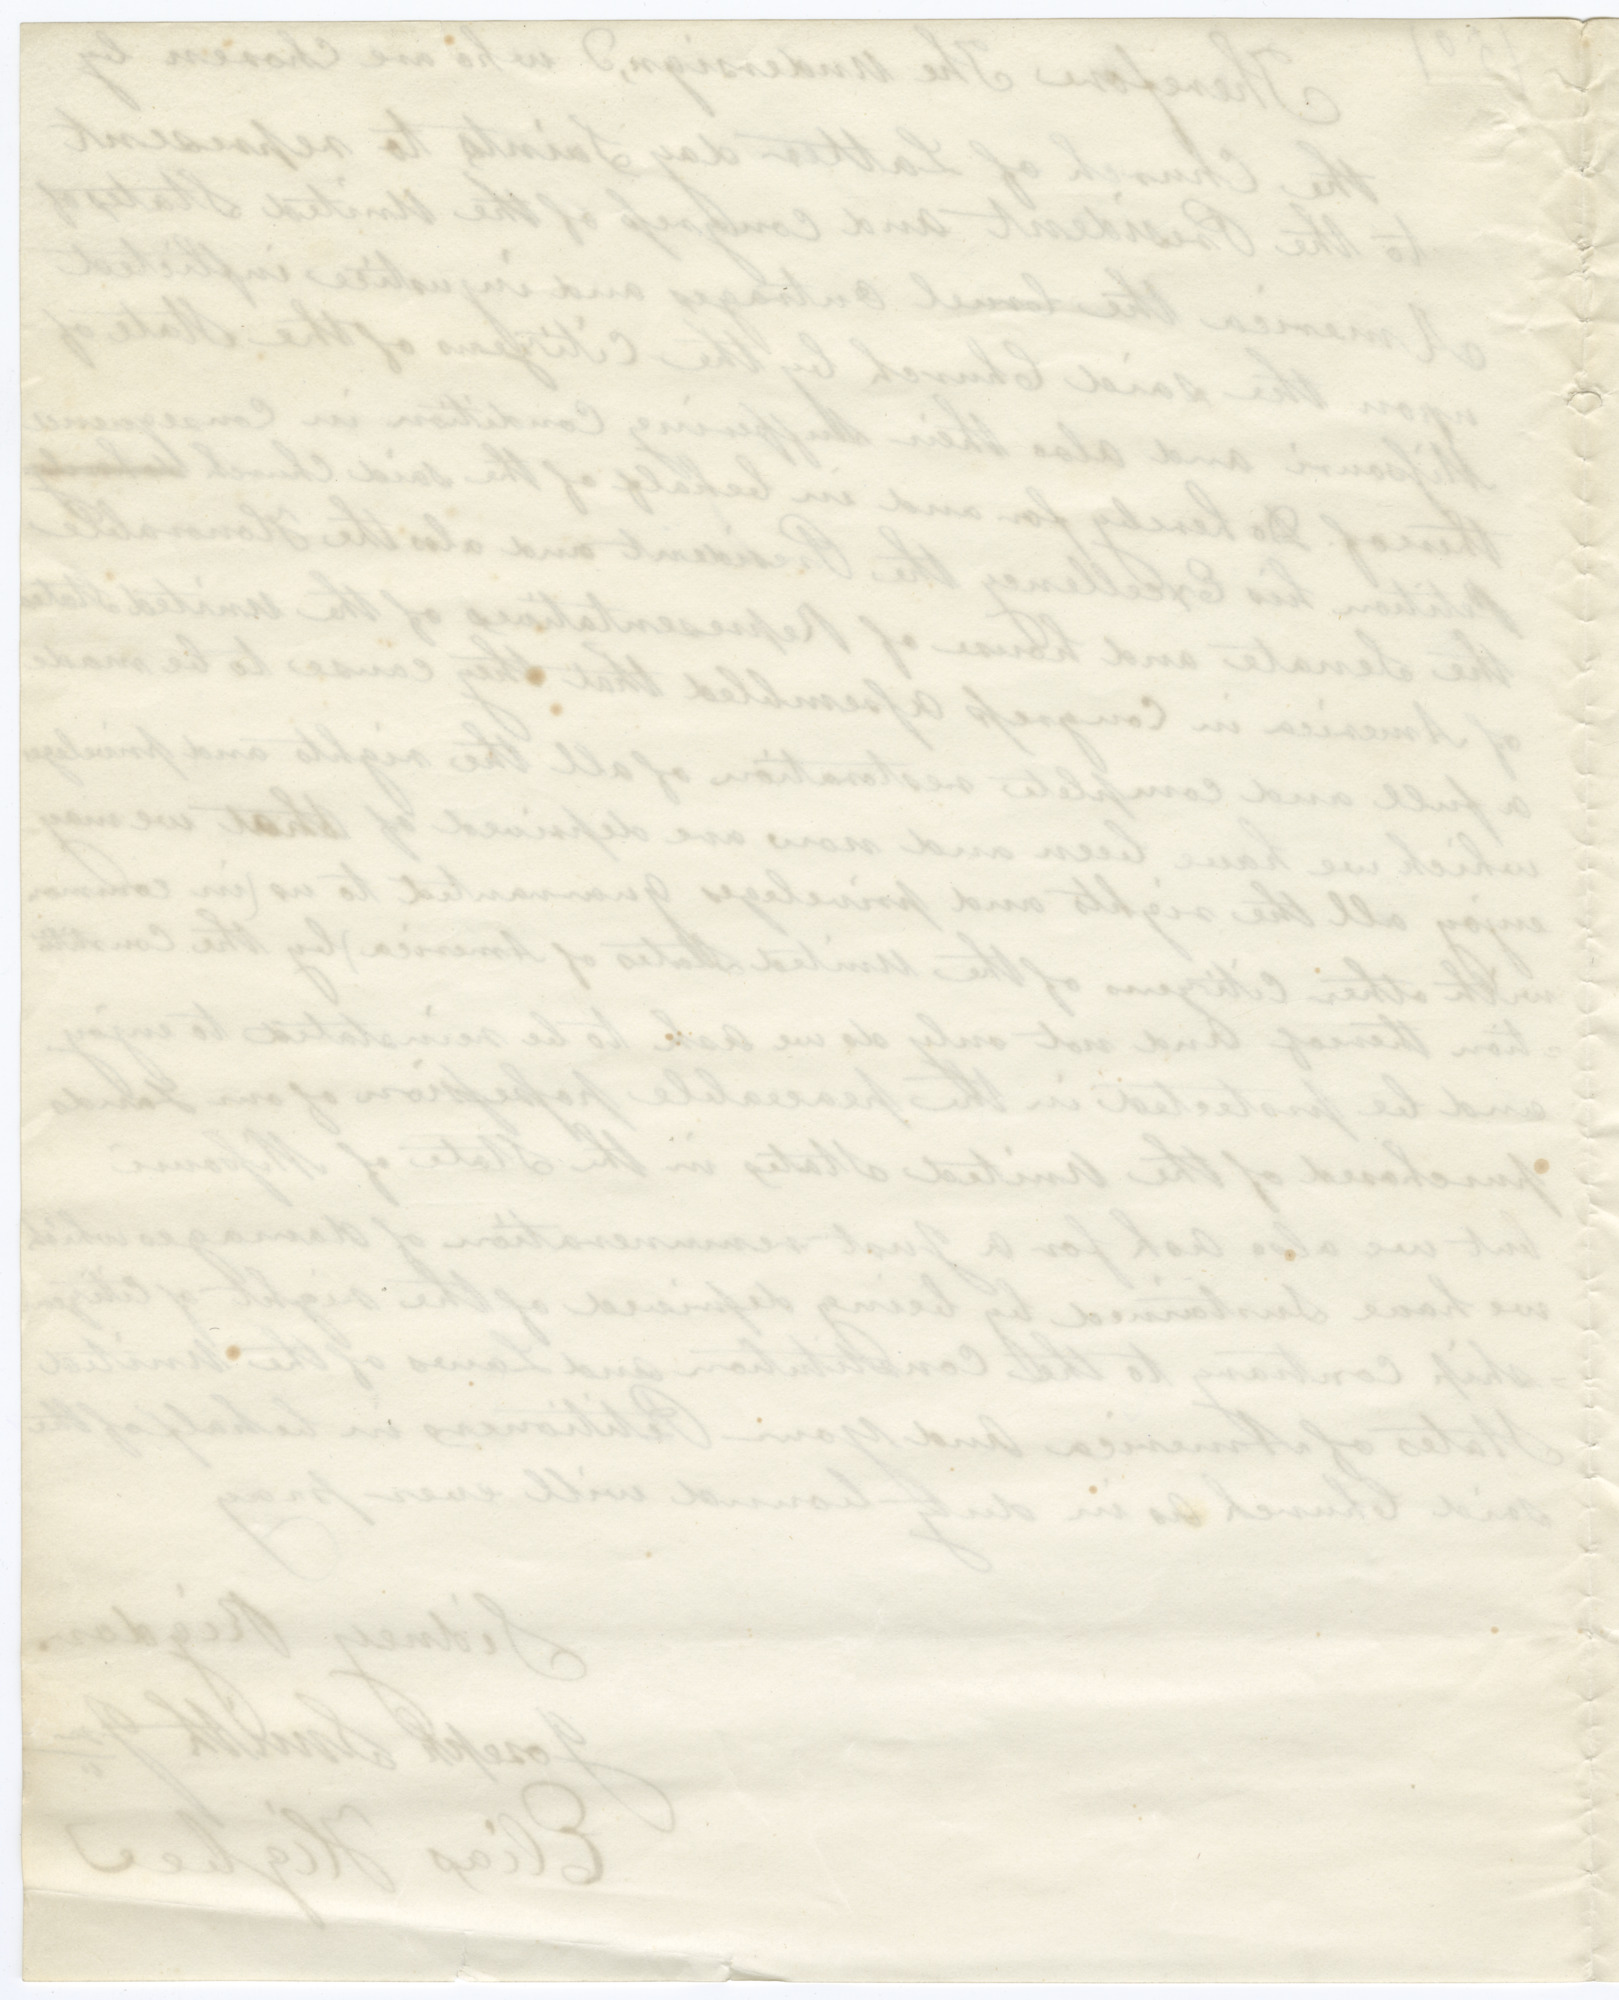 Therefore The undersign,d who are Chosen by
the Church of Latter day Saints to represent
to the President and Congress of the United States of
America the Outrages and injustice inflicted
upon the said Church by the Citizens of the State of
Missouri and also their Suffering Condition in Consequence
thereof. Do hereby for and in behalf of the said Church
Petition his Excellency the President and also the Honorable
the Senate and House of Representatives of the United States
of America in Congress assembled that they cause to be made
a full and complete restoration of all the rights and privileges
which we have been and now are deprived of that we may
enjoy all the rights and priveleges guaranted to us (in common
with other Citizens of the United States of America) by the Constitu
=tion thereof And not only do we ask to be reinstated to enjoy
and be protected in the peaceable possession of our Lands
purchased of the United States in the State of Missouri
but we also ask for a just remuneration of damages which
we have Sustained by being deprived of the right of Citizen
=ship contrary to the Constitution and Laws of the United
States of America And Your Petitioners in behalf of the
said Church as in duty bound will ever pray
Sidney Rigdon
Joseph Smith Jr
Elias Higbee